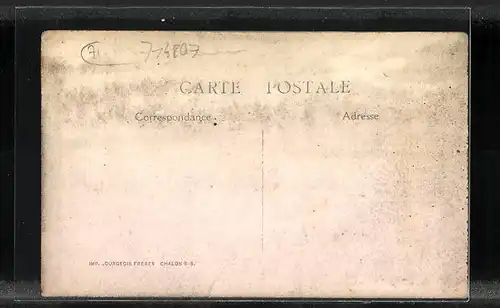 71
CARTE POSTALE
Correspondance
Adresse
IMP. BOURGEOIS FRÈRES CHALON S-S.